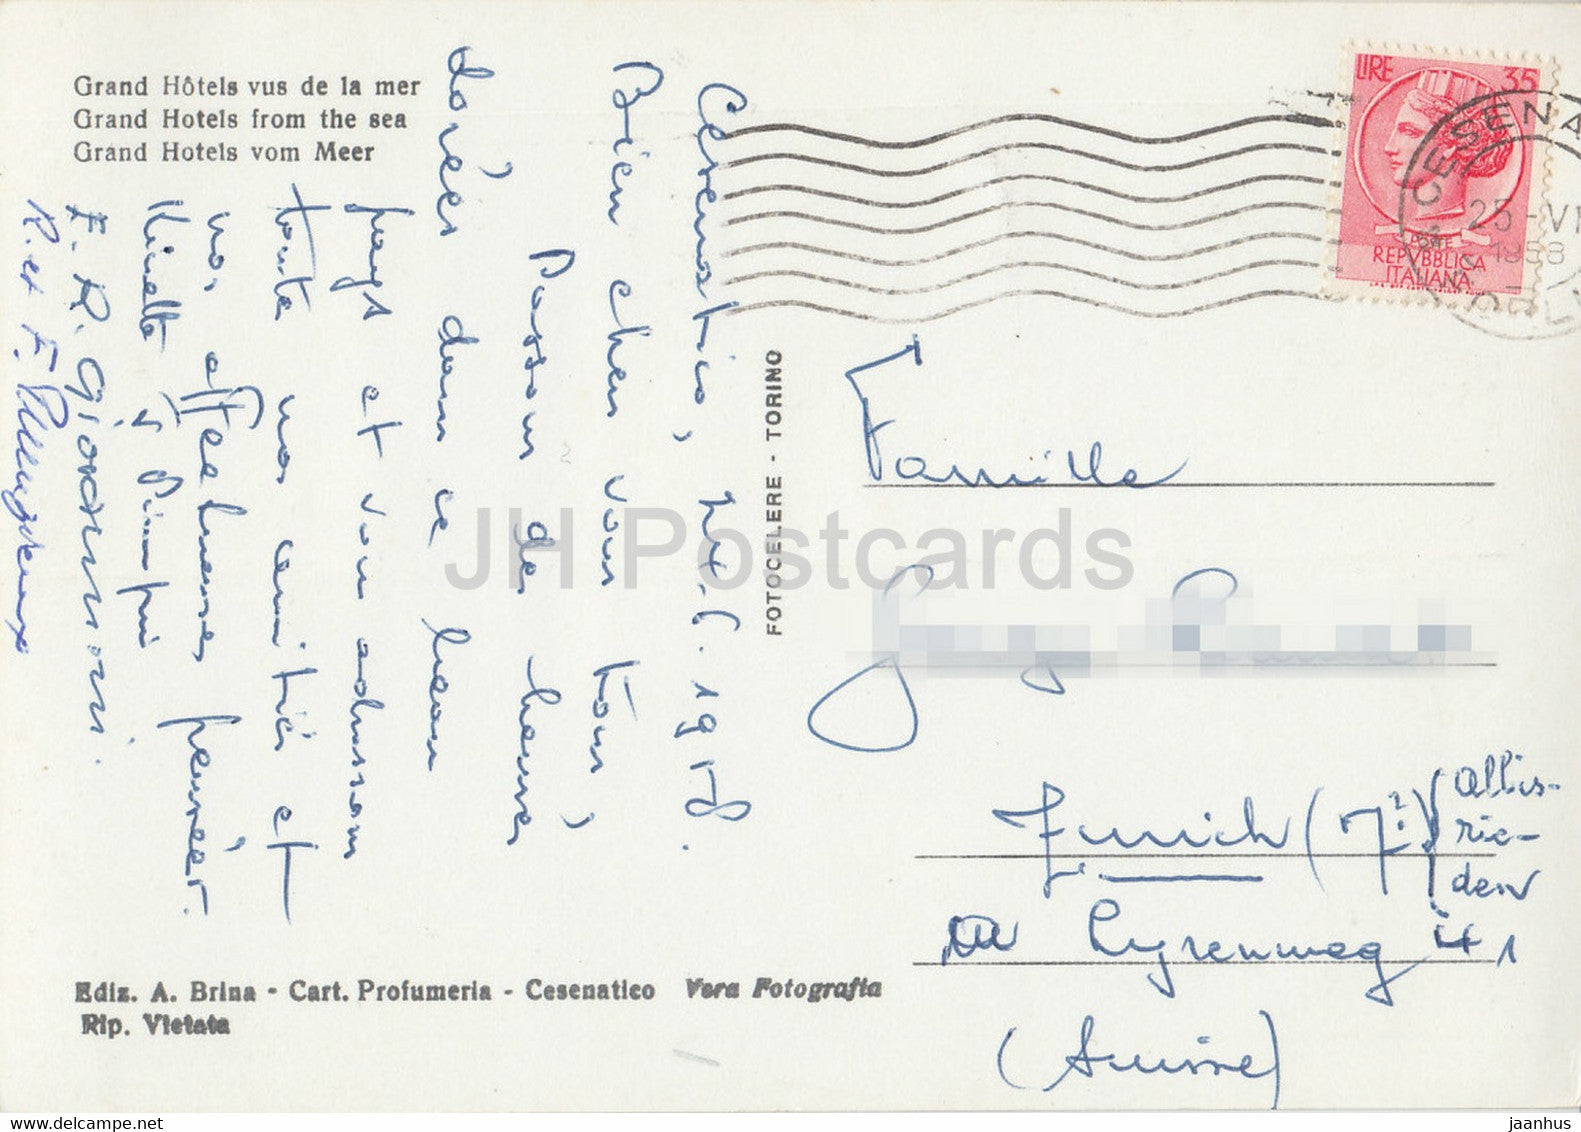 Grand Hôtels vus de la mer
Grand Hotels from the sea
Grand Hotels vom Meer
Cesenatico, 24.6.1958.
Bien chers vous tous,
Passons des bonnes
soirées dans ce beau
pays et vous adressons
toute nos amitiés et
nos affectueuses pensées.
F. R. Giovannoni.
R. et F.
FOTOCELERE - TORINO
LIRE 35
POSTE
REPVBBLICA
ITALIANA
CESENA
25-VI
1958
Famille
Zurich (
Albis-
rie-
den
41
(Suisse)
Ediz. A. Brina - Cart. Profumeria - Cesenatico Vera Fotografia
Rip. Vietata
JH Postcards
jaanhus